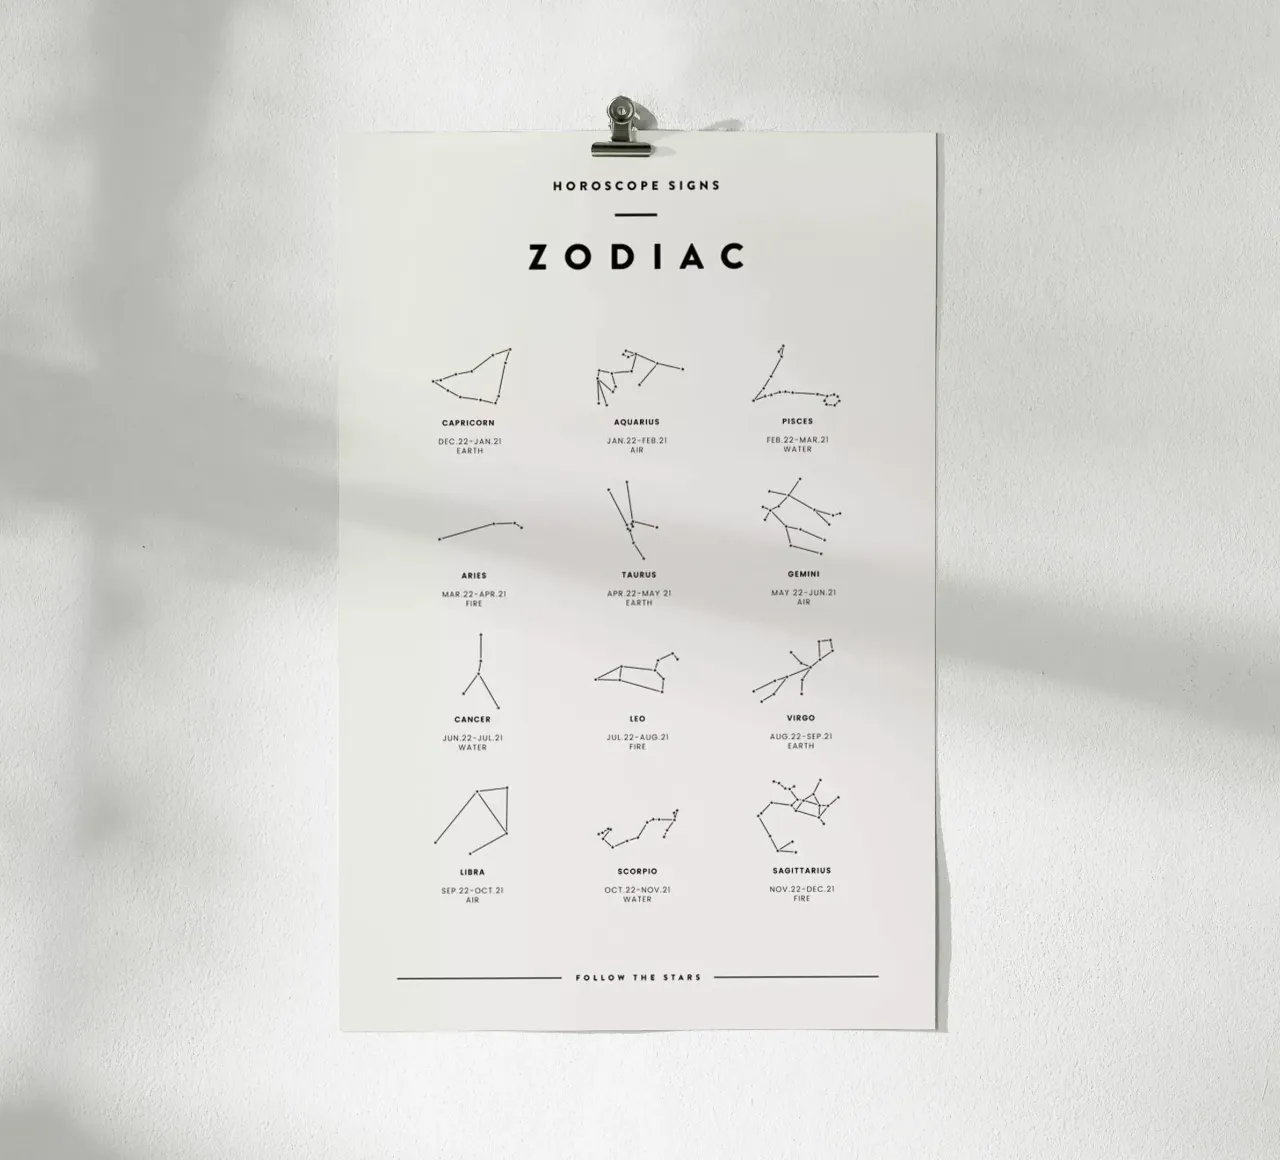 HOROSCOPE SIGNS
ZODIAC
CAPRICORN
DEC.22-JAN.21
EARTH
AQUARIUS
JAN.22-FEB.21
AIR
PISCES
FEB.22-MAR.21
WATER
ARIES
MAR.22-APR.21
FIRE
TAURUS
APR.22-MAY 21
EARTH
GEMINI
MAY 22-JUN.21
AIR
CANCER
JUN.22-JUL.21
WATER
LEO
JUL.22-AUG.21
FIRE
VIRGO
AUG.22-SEP.21
EARTH
LIBRA
SEP.22-OCT.21
AIR
SCORPIO
OCT.22-NOV.21
WATER
SAGITTARIUS
NOV.22-DEC.21
FIRE
FOLLOW THE STARS